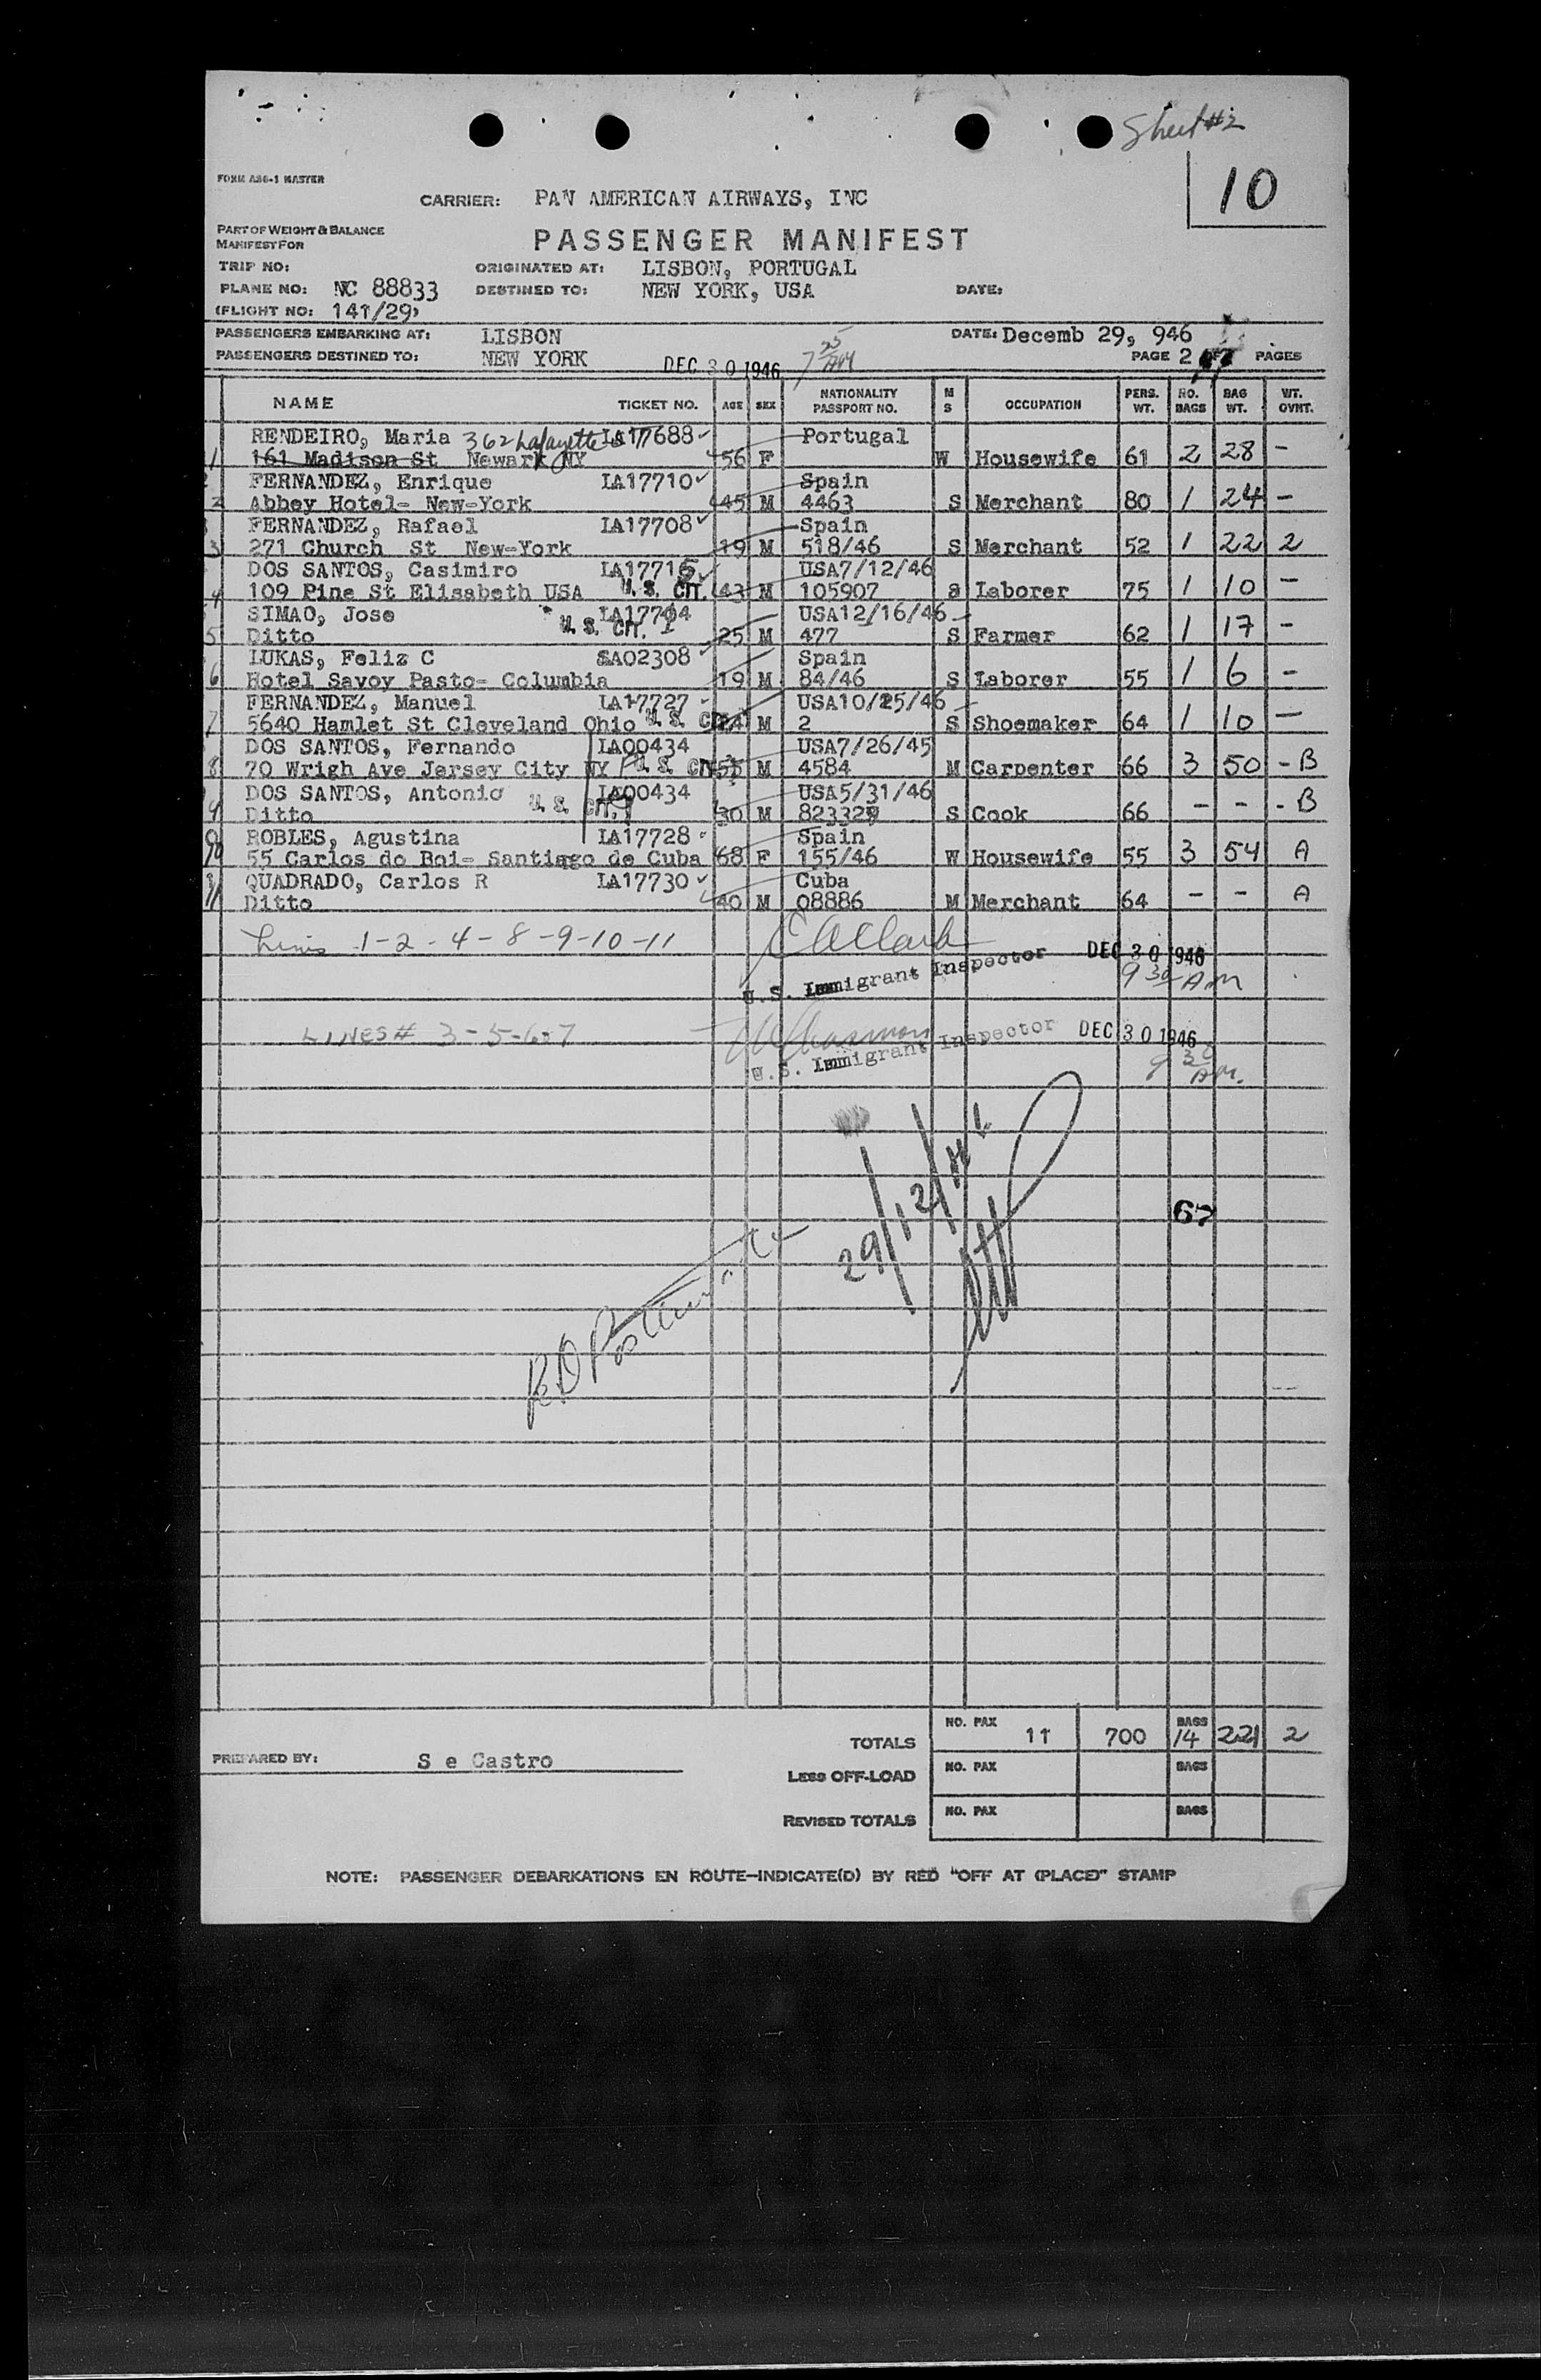 Sheet #2
10
FORM A86-1 MASTER
CARRIER: PAN AMERICAN AIRWAYS, INC
PART OF WEIGHT & BALANCE
MANIFEST FOR
PASSENGER MANIFEST
TRIP NO: ORIGINATED AT: LISBON, PORTUGAL
PLANE NO: NC 88833 DESTINED TO: NEW YORK, USA DATE:
(FLIGHT NO: 141/29)
PASSENGERS EMBARKING AT: LISBON DATE: Decemb 29, 946
PASSENGERS DESTINED TO: NEW YORK DEC 30 1946 7 25 AM PAGE 2 OF PAGES
NAME TICKET NO. AGE SEX NATIONALITY PASSPORT NO. M S OCCUPATION PERS. WT. NO. BAGS BAG WT. WT. OVHT.
RENDEIRO, Maria 362 Lafayette St LA17688 Portugal
1 161 Madison St Newark NY 56 F W Housewife 61 2 28 -
FERNANDEZ, Enrique LA17710 Spain
2 Abbey Hotel- New-York 45 M 4463 S Merchant 80 1 24 -
FERNANDEZ, Rafael LA17708 Spain
3 271 Church St New-York 19 M 518/46 S Merchant 52 1 22 2
DOS SANTOS, Casimiro LA17715 USA7/12/46
4 109 Pine St Elisabeth USA U.S. CIT. 43 M 105907 S Laborer 75 1 10 -
SIMAO, Jose LA17704 USA12/16/46
5 Ditto U.S. CIT. 25 M 477 S Farmer 62 1 17 -
LUKAS, Feliz C SA02308 Spain
6 Hotel Savoy Pasto- Columbia 19 M 84/46 S Laborer 55 1 6 -
FERNANDEZ, Manuel LA17727 USA10/25/46
7 5640 Hamlet St Cleveland Ohio U.S. CIT. 24 M 2 S Shoemaker 64 1 10 -
DOS SANTOS, Fernando LA00434 USA7/26/45
8 70 Wrigh Ave Jersey City NY U.S. CIT. 55 M 4584 M Carpenter 66 3 50 - B
DOS SANTOS, Antonio LA00434 USA5/31/46
9 Ditto U.S. CIT. 30 M 823329 S Cook 66 - - - B
ROBLES, Agustina LA17728 Spain
10 55 Carlos do Bai- Santiago de Cuba 68 F 155/46 W Housewife 55 3 54 A
QUADRADO, Carlos R LA17730 Cuba
11 Ditto 40 M 08886 M Merchant 64 - - A
Lines 1-2-4-8-9-10-11 E A Clark DEC 30 1946
U.S. Immigrant Inspector 9 30 A.M
LINES # 3-5-6-7 DEC 30 1946
U.S. Immigrant Inspector 9 30 A.M.
29/12/46
67
TOTALS NO. PAX 11 700 BAGS 14 221 2
PREPARED BY: S e Castro
LESS OFF-LOAD NO. PAX BAGS
REVISED TOTALS NO. PAX BAGS
NOTE: PASSENGER DEBARKATIONS EN ROUTE—INDICATE(D) BY RED "OFF AT (PLACE)" STAMP